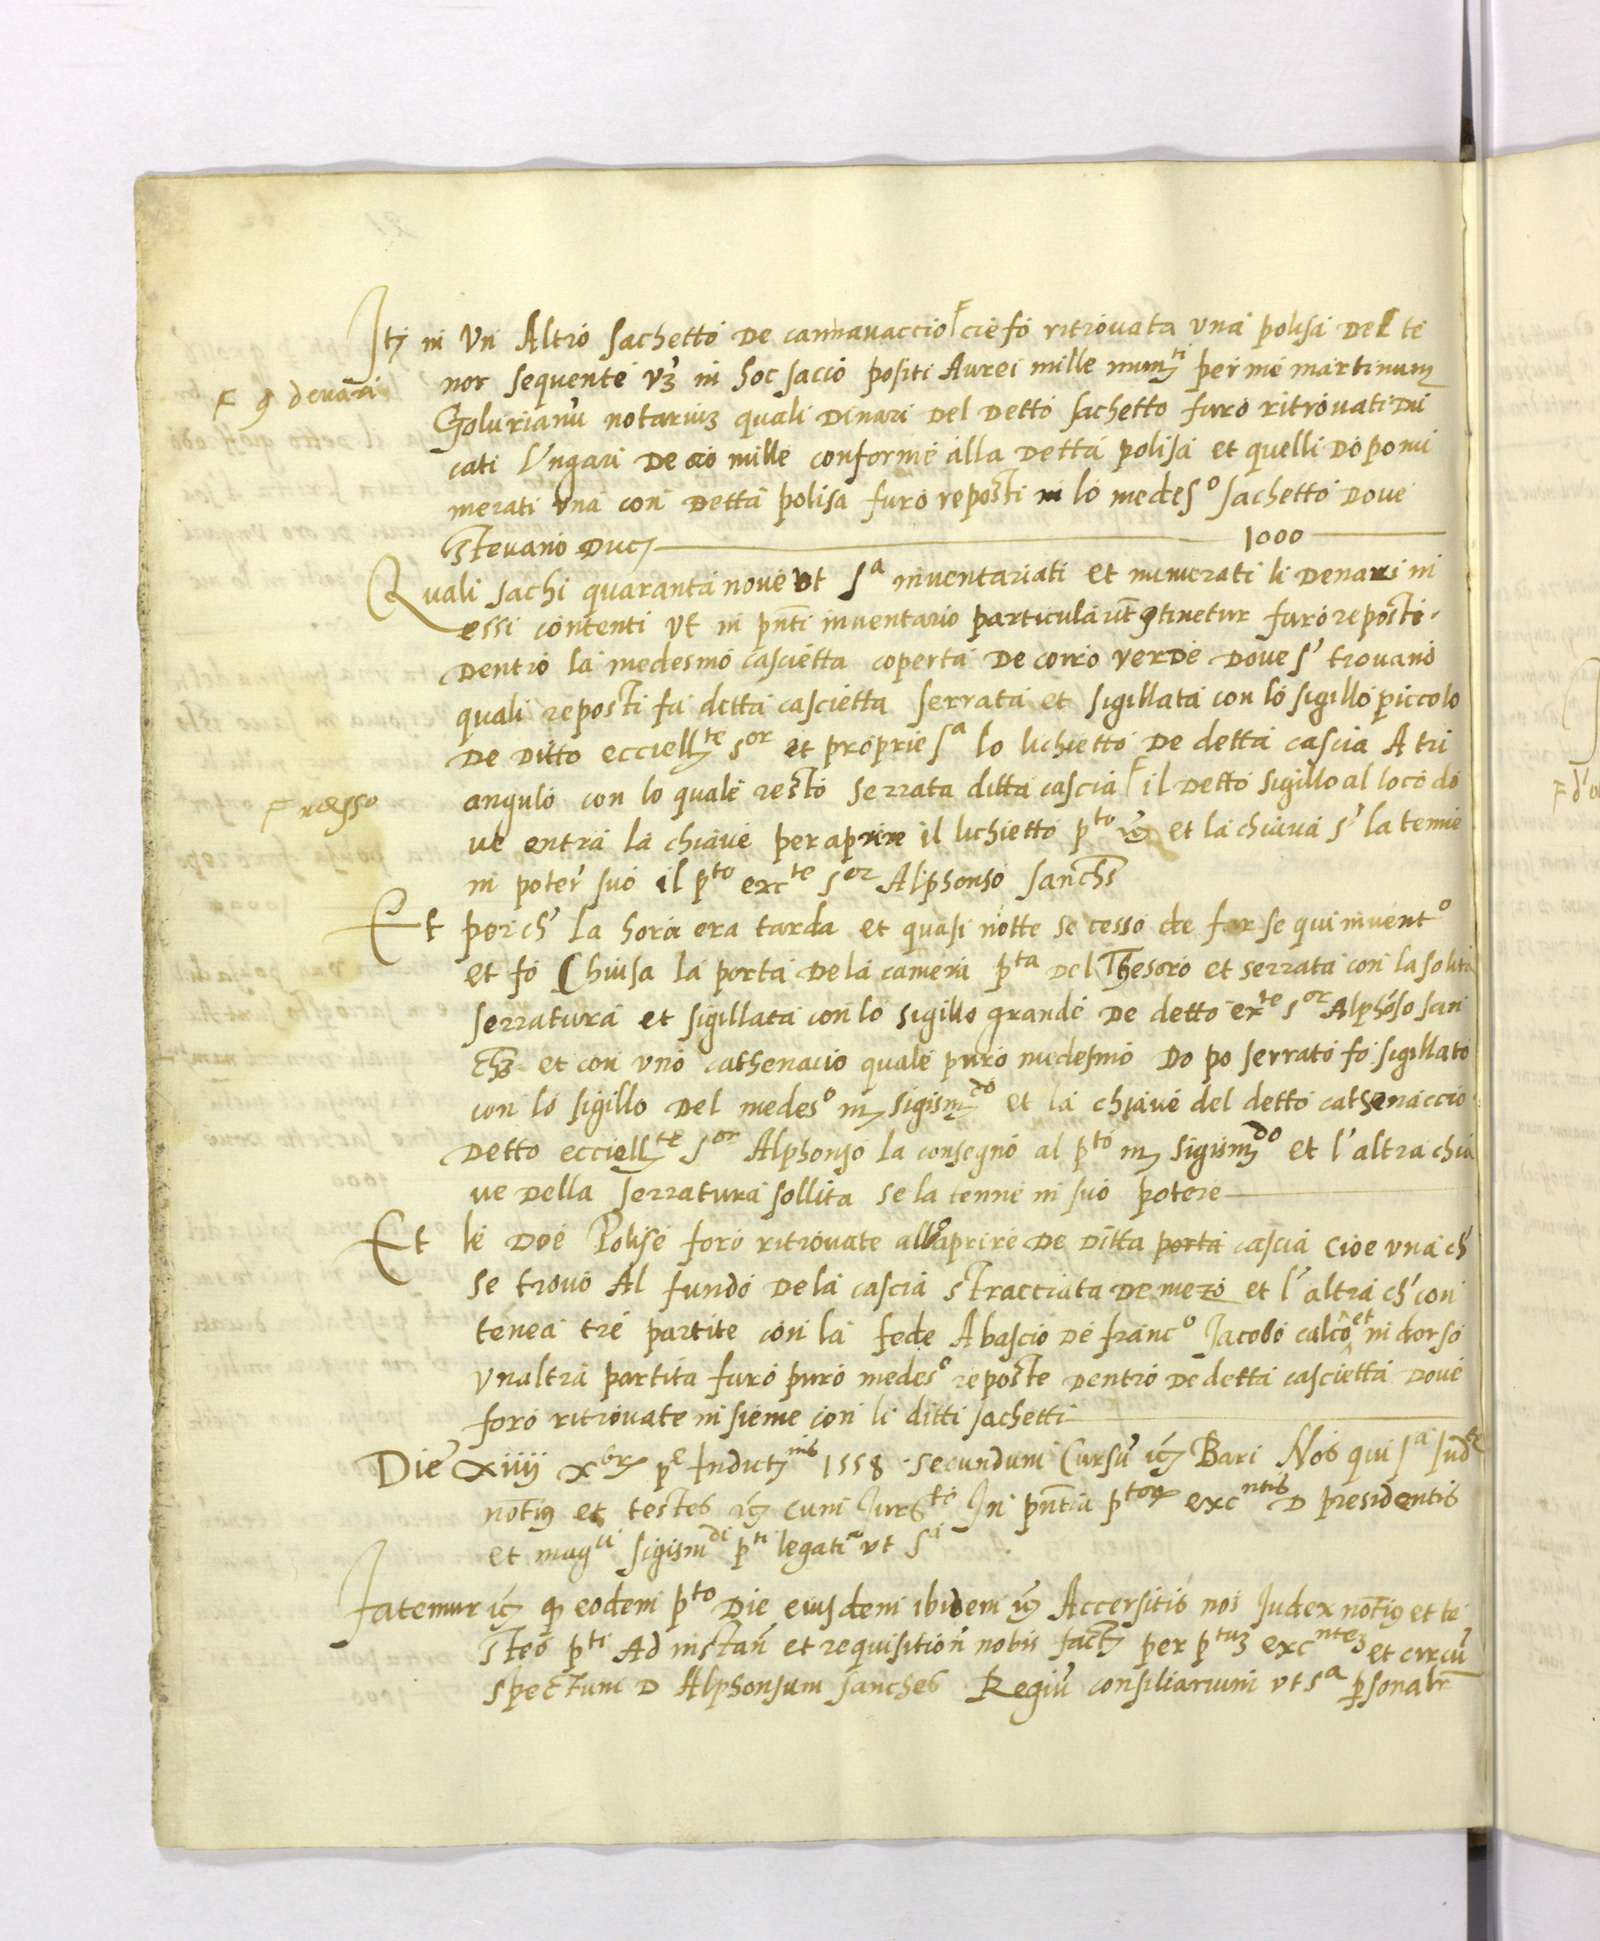 Itȝ in un Altro sachetto de cannavaccio ᶠ cie fó ritrovata una polisa del te
nor sequente vȝ in hoc sacco positi Aurei mille numᵗⁱ per me martinum
F denari
Golurianū notariuȝ quali dinari del detto sachetto furo ritrovati du
cati Ungari de oro mille conforme alla detta polisa et quelli dopo nu
merati una con detta polisa furo reposti in lo medesᵒ sachetto dove
stevano ducȝ 1000
Quali sachi quaranta nove ut sᵃ inventariati et numerati li denari in
essi contenti ut in pñti inventario particularit̃ ꝯtinetur furo reposti
dentro la medesmo cascietta coperta de corio verde dove s' trovano
quali reposti fu detta cascietta serrata et sigillata con lo sigillo piccolo
de ditto eccellᵗᵉ sᵒʳ et proprie sᵃ lo lichietto de detta cascia A tri
angulo con lo quale restó serrata ditta cascia ᶠ il detto sigillo al loco do
F
ve entra la chiave per aprire il lichietto pᵗᵒ et la chiava s' la tenne
in poter suo il pᵗᵒ excᵗᵉ sᵒʳ Alphonso sanchȝ
Et per ch' la hora era tarda et quasi notte se cessó de far se qui inventᵒ
et fó Chiusa la porta de la camera pᵗᵃ del Thesoro et serrata con la solita
serratura et sigillata con lo sigillo grande de detto exᵗᵉ sᵒʳ Alphōso san
chȝ et con uno cathenacio quale puro medesmo do po serrato fó sigillato
con lo sigillo del medesᵒ mȝ sigismᵈᵒ et la chiave del detto cathenaccio
detto eccellᵗᵉ sᵒʳ Alphonso la consegnó al pᵗᵒ mȝ sigismᵈᵒ et l'altra chia
ve della serratura sollita se la tenne in suo potere
Et le doe Polise foro ritrovate all aprire de ditta porta cascia cioe una ch'
se trovó Al fundo de la cascia stracciata de mezo et l'altra ch' con
tenea tre partite con la fede Abascio de francᵒ Jacobo calcō et in dorso
un altra partita furó puro medesᵒ reposte dentro de detta cascietta dove
foro ritrovate insieme con li ditti sachetti
Die xiiij xbrȝ pᵉ Inductȝⁿⁱˢ 1558 secundum Cursū Bari Nos qui sᵃ Judex
notȝ et testes cum In pñtia pᵗᵒʳ excⁿᵗⁱˢ D presidentis
et magᶜⁱ sigismᵈⁱ pᵗⁱ legati ut sᵃ
fatemur qȝ eodem pᵗᵒ die eiusdem ibidem Accersitis nos Judex notȝ et te
stes pᵗⁱ Ad instañ et requisitioñ nobis factȝ per pᵗᵘȝ excⁿᵗᵉȝ et circū
spectum D Alphonsum sanches Regiū consiliarium ut sᵃ ꝑsonalr̃